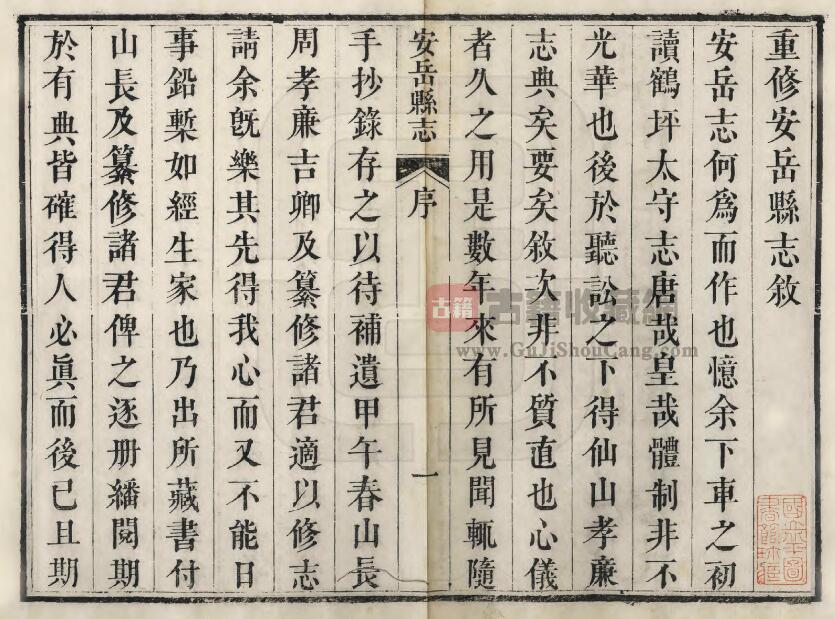 重修安岳縣志敘
安岳志何爲而作也憶余下車之初
讀鶴坪太守志唐哉皇哉體制非不
光華也後於聽訟之下得仙山孝廉
志典矣要矣敘次非不質直也心儀
者久之用是數年來有所見聞輒隨
安岳縣志 序 一
手抄錄存之以待補遺甲午春山長
周孝廉吉卿及纂修諸君適以修志
請余旣樂其先得我心而又不能日
事鉛槧如經生家也乃出所藏書付
山長及纂修諸君俾之逐册繙閱期
於有典皆確得人必眞而後已且期
古籍 古籍收藏網
www.GuJiShouCang.com